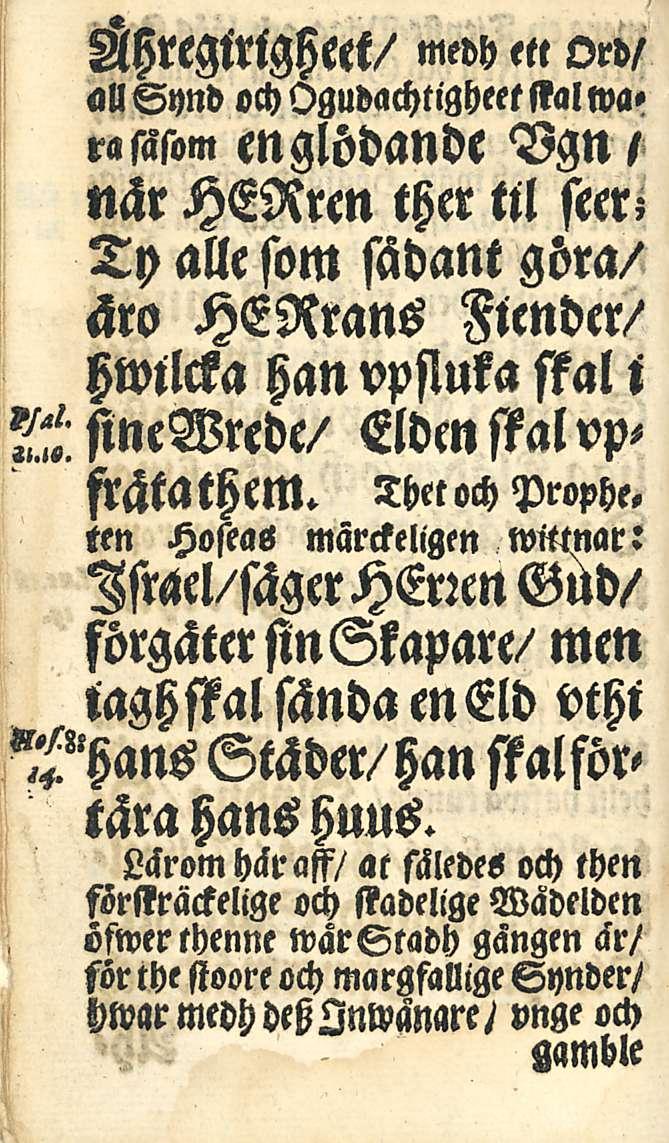 Åhregirigheet/ medh ett Ord/
all Synd och Ogudachtigheet skal wa-
ra såsom en glödande Vgn /
när HERren ther til seer;
Ty alle som sådant göra/
äro HERrans Fiender/
hwilcka han vpsluka skal i
Psal. 21.10.
sine Wrede/ Elden skal vp-
fräta them. Thet och Prophe-
ten Hoseas märckeligen wittnar:
Israel/ säger HErren Gud/
förgäter sin Skapare/ men
iagh skal sända en Eld vthi
Hos. 8: 14.
hans Städer/ han skal för-
tära hans huus.
Lärom här aff/ at således och then
förskräckelige och skadelige Wådelden
öfwer thenne wår Stadh gången är/
för the stoore och margfallige Synder/
hwar medh deß Inwånare / vnge och
gamble